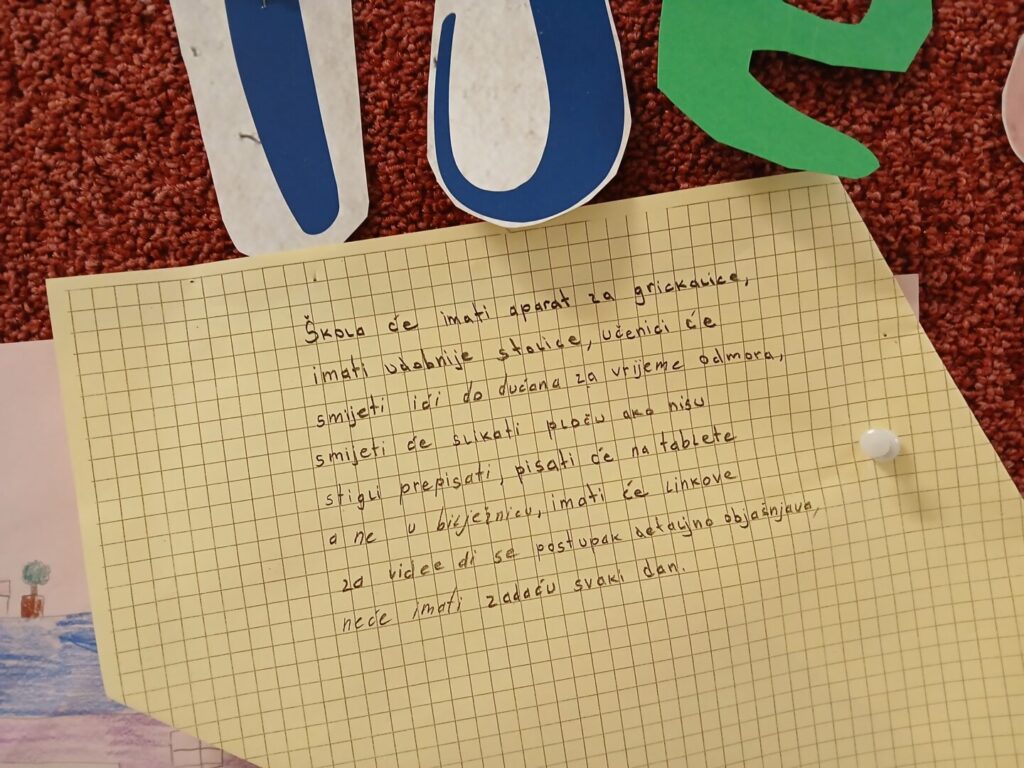 Škola će imati aparat za grickalice,
imati udobnije stolice, učenici će
smijeti ići do dućana za vrijeme odmora,
smijeti će slikati ploču ako nisu
stigli prepisati, pisati će na tablete
a ne u bilježnicu, imati će linkove
za videe di se postupak detaljno objašnjava,
neće imati zadaću svaki dan.